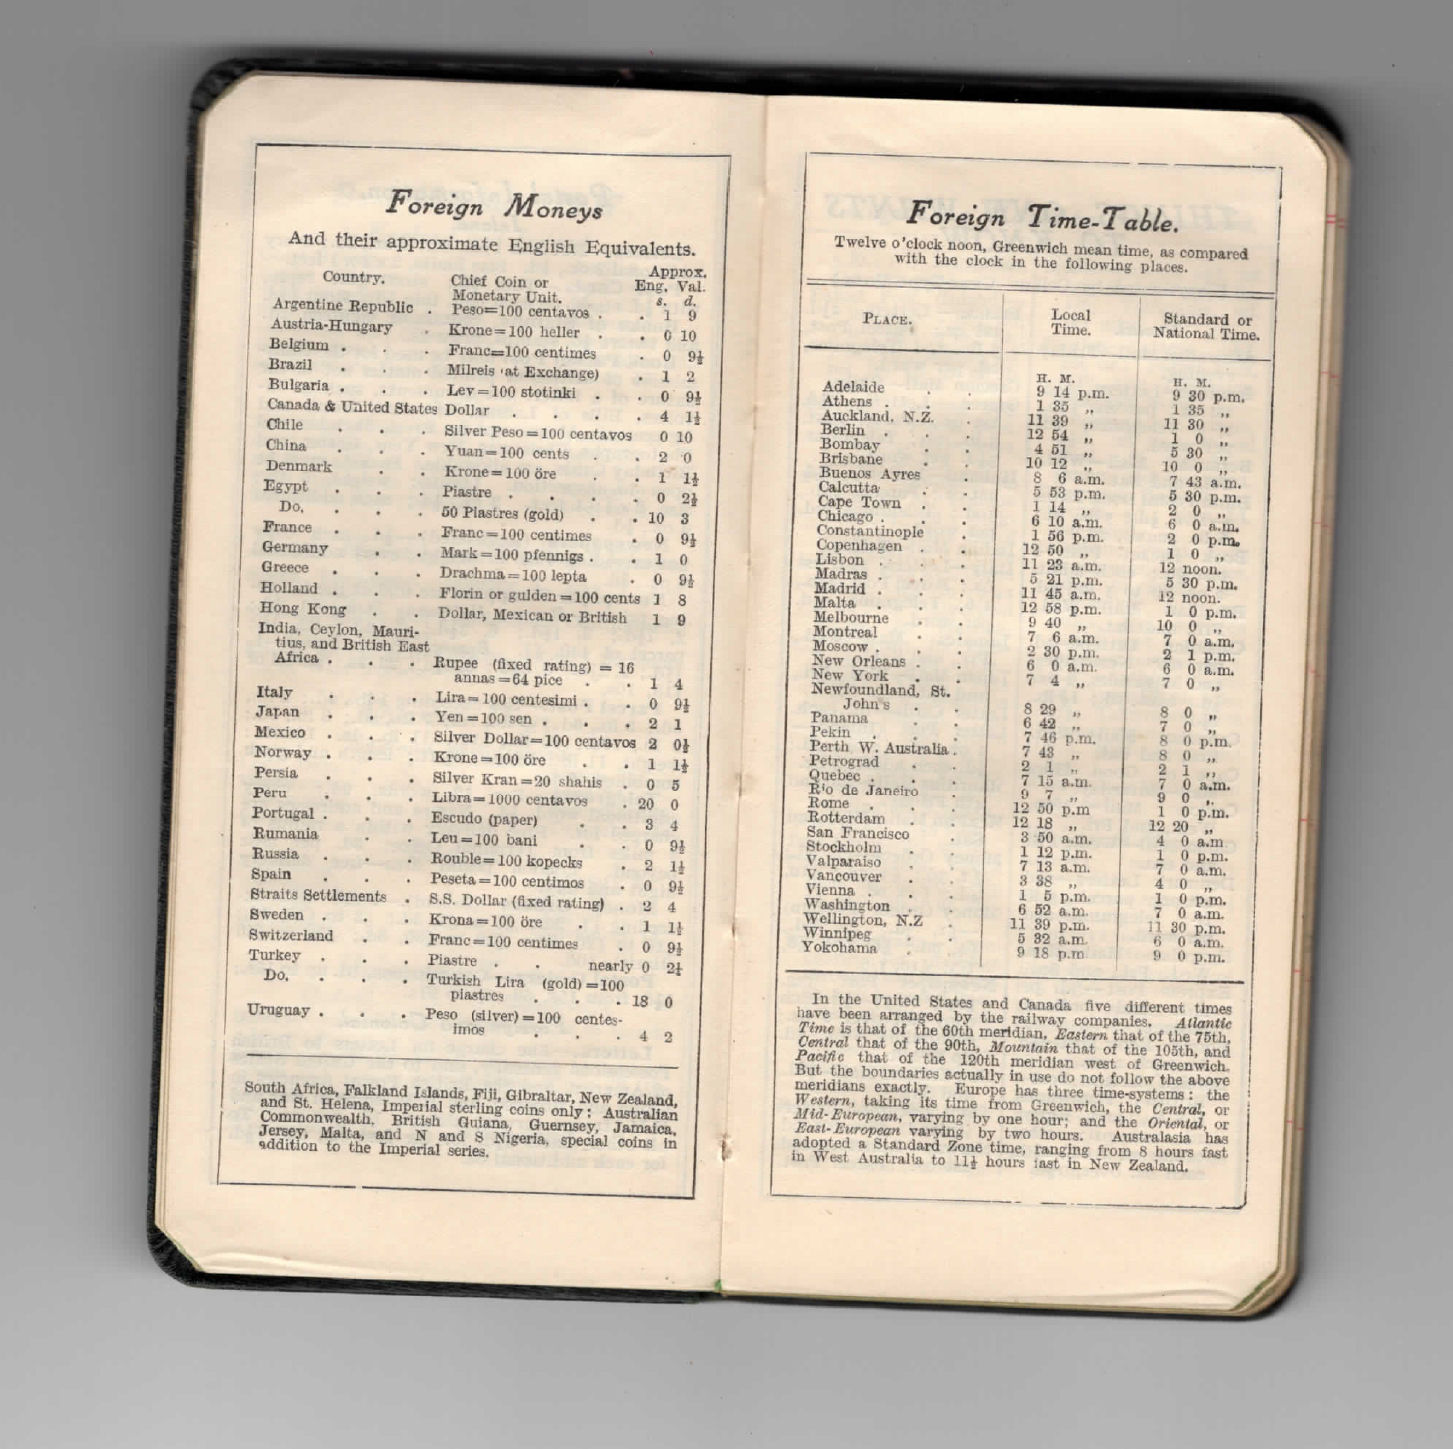 Foreign Moneys
And their approximate English Equivalents.
Country. Chief Coin or Monetary Unit. Approx. Eng. Val.
s. d.
Argentine Republic . Peso=100 centavos . . 1 9
Austria-Hungary . Krone=100 heller . . 0 10
Belgium . . . Franc=100 centimes . 0 9½
Brazil . . Milreis (at Exchange) . 1 2
Bulgaria . . . Lev=100 stotinki . . 0 9½
Canada & United States Dollar . . . . 4 1½
Chile . . . Silver Peso=100 centavos 0 10
China . . . Yuan=100 cents . . 2 0
Denmark . . Krone=100 öre . . 1 1½
Egypt . . . Piastre . . . . 0 2½
Do. . . . 50 Piastres (gold) . . 10 3
France . . . Franc=100 centimes . 0 9½
Germany . . Mark=100 pfennigs . . 1 0
Greece . . . Drachma=100 lepta . 0 9½
Holland . . . Florin or gulden=100 cents 1 8
Hong Kong . . Dollar, Mexican or British 1 9
India, Ceylon, Mauri-
tius, and British East
Africa . . . Rupee (fixed rating) = 16
annas=64 pice . . 1 4
Italy . . . Lira=100 centesimi . . 0 9½
Japan . . . Yen=100 sen . . . 2 1
Mexico . . . Silver Dollar=100 centavos 2 0½
Norway . . . Krone=100 öre . . 1 1½
Persia . . . Silver Kran=20 shahis . 0 5
Peru . . . Libra=1000 centavos . 20 0
Portugal . . . Escudo (paper) . . 3 4
Rumania . Leu=100 bani . . 0 9½
Russia . . . Rouble=100 kopecks . 2 1½
Spain . . . Peseta=100 centimos . 0 9½
Straits Settlements . S.S. Dollar (fixed rating) . 2 4
Sweden . . . Krona=100 öre . . 1 1½
Switzerland . . Franc=100 centimes . 0 9½
Turkey . . . Piastre . . nearly 0 2¼
Do. . . . Turkish Lira (gold)=100
piastres . . . 18 0
Uruguay . . . Peso (silver)=100 centes-
imos . . . 4 2
South Africa, Falkland Islands, Fiji, Gibraltar, New Zealand,
and St. Helena, Imperial sterling coins only; Australian
Commonwealth, British Guiana, Guernsey, Jamaica,
Jersey, Malta, and N and S Nigeria, special coins in
addition to the Imperial series.
Foreign Time-Table.
Twelve o'clock noon, Greenwich mean time, as compared
with the clock in the following places.
PLACE. Local Time. Standard or National Time.
H. M. H. M.
Adelaide . . 9 14 p.m. 9 30 p.m.
Athens . . . 1 35 „ 1 35 „
Auckland, N.Z. . 11 39 „ 11 30 „
Berlin . . . 12 54 „ 1 0 „
Bombay . . 4 51 „ 5 30 „
Brisbane . . 10 12 „ 10 0 „
Buenos Ayres . 8 6 a.m. 7 43 a.m.
Calcutta . . 5 53 p.m. 5 30 p.m.
Cape Town . . 1 14 „ 2 0 „
Chicago . . . 6 10 a.m. 6 0 a.m.
Constantinople . 1 56 p.m. 2 0 p.m.
Copenhagen . . 12 50 „ 1 0 „
Lisbon . . . 11 23 a.m. 12 noon.
Madras . . . 5 21 p.m. 5 30 p.m.
Madrid . . . 11 45 a.m. 12 noon.
Malta . . . 12 58 p.m. 1 0 p.m.
Melbourne . . 9 40 „ 10 0 „
Montreal . . 7 6 a.m. 7 0 a.m.
Moscow . . . 2 30 p.m. 2 1 p.m.
New Orleans . . 6 0 a.m. 6 0 a.m.
New York . . 7 4 „ 7 0 „
Newfoundland, St.
John's . . 8 29 „ 8 0 „
Panama . . 6 42 „ 7 0 „
Pekin . . . 7 46 p.m. 8 0 p.m.
Perth W. Australia . 7 43 „ 8 0 „
Petrograd . . 2 1 „ 2 1 „
Quebec . . . 7 15 a.m. 7 0 a.m.
Rio de Janeiro . 9 7 „ 9 0 „
Rome . . . 12 50 p.m 1 0 p.m.
Rotterdam . . 12 18 „ 12 20 „
San Francisco . 3 50 a.m. 4 0 a.m.
Stockholm . . 1 12 p.m. 1 0 p.m.
Valparaiso . . 7 13 a.m. 7 0 a.m.
Vancouver . . 3 38 „ 4 0 „
Vienna . . . 1 5 p.m. 1 0 p.m.
Washington . . 6 52 a.m. 7 0 a.m.
Wellington, N.Z . 11 39 p.m. 11 30 p.m.
Winnipeg . . 5 32 a.m. 6 0 a.m.
Yokohama . . 9 18 p.m 9 0 p.m.
In the United States and Canada five different times
have been arranged by the railway companies. Atlantic
Time is that of the 60th meridian, Eastern that of the 75th,
Central that of the 90th, Mountain that of the 105th, and
Pacific that of the 120th meridian west of Greenwich.
But the boundaries actually in use do not follow the above
meridians exactly. Europe has three time-systems: the
Western, taking its time from Greenwich, the Central, or
Mid-European, varying by one hour; and the Oriental, or
East-European varying by two hours. Australasia has
adopted a Standard Zone time, ranging from 8 hours fast
in West Australia to 11½ hours fast in New Zealand.